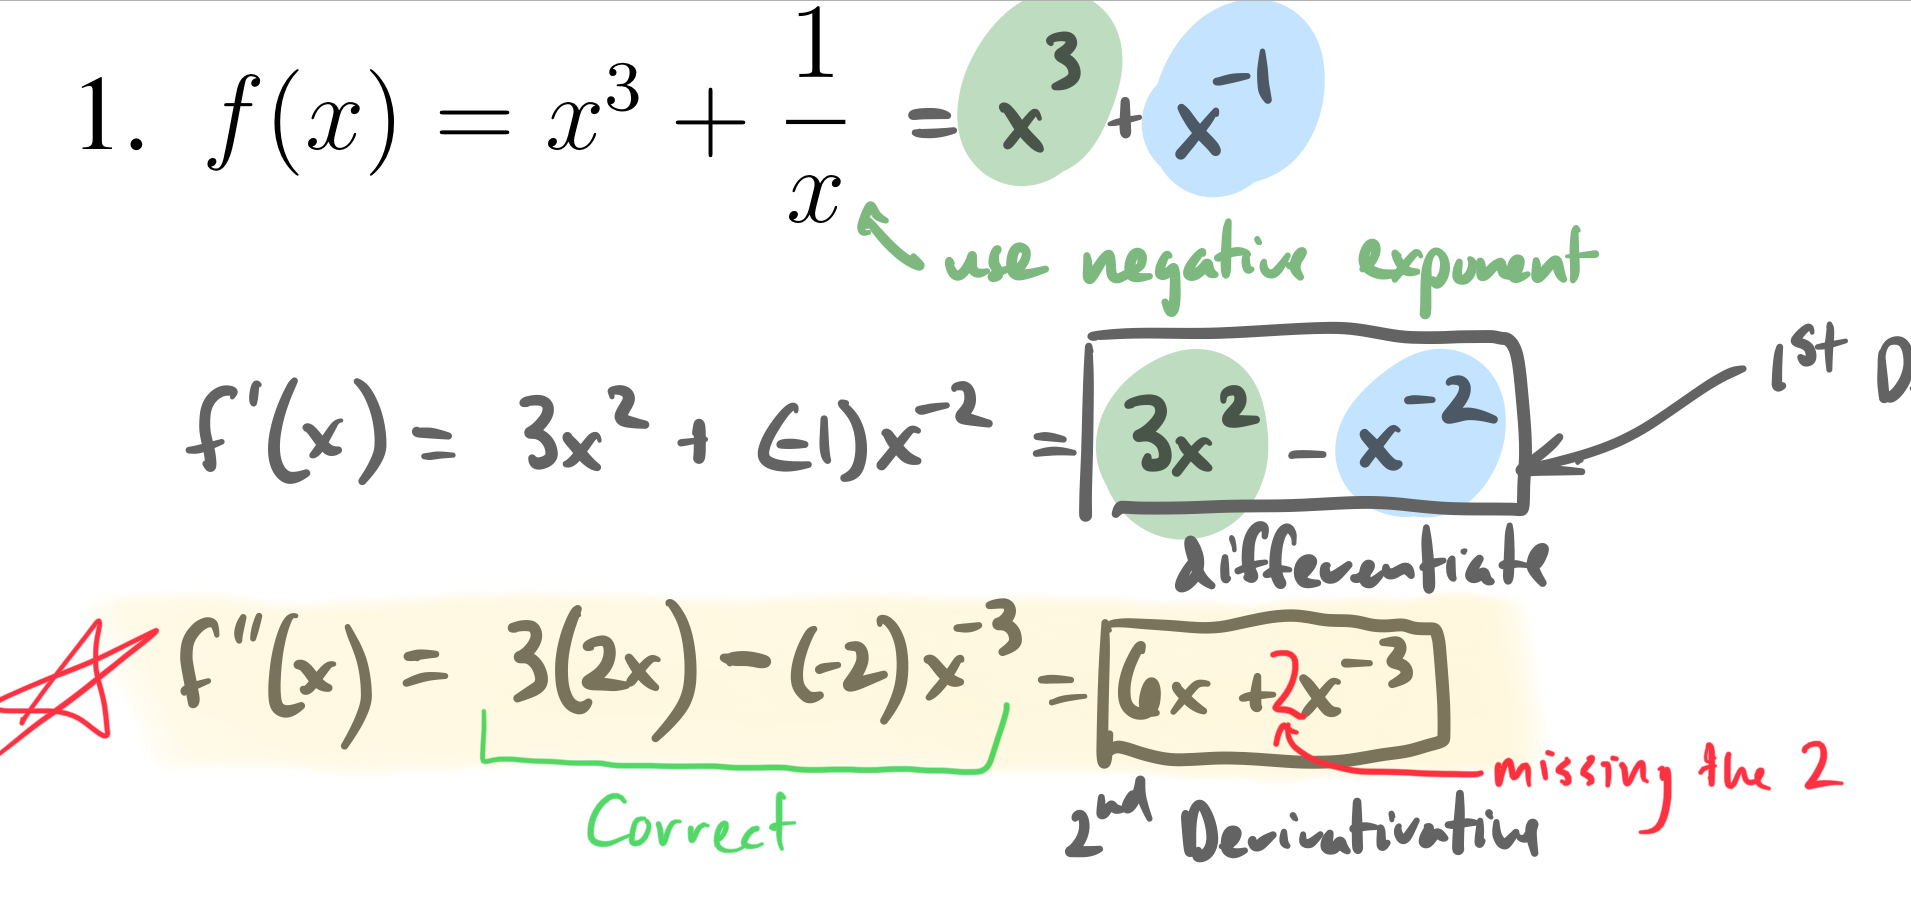 1. f(x) = x³ + 1/x = x³ + x⁻¹
use negative exponent
f'(x) = 3x² + (-1)x⁻² = 3x² - x⁻²
1st D
differentiate
f''(x) = 3(2x) - (-2)x⁻³ = 6x + 2x⁻³
missing the 2
Correct
2nd Derivativative